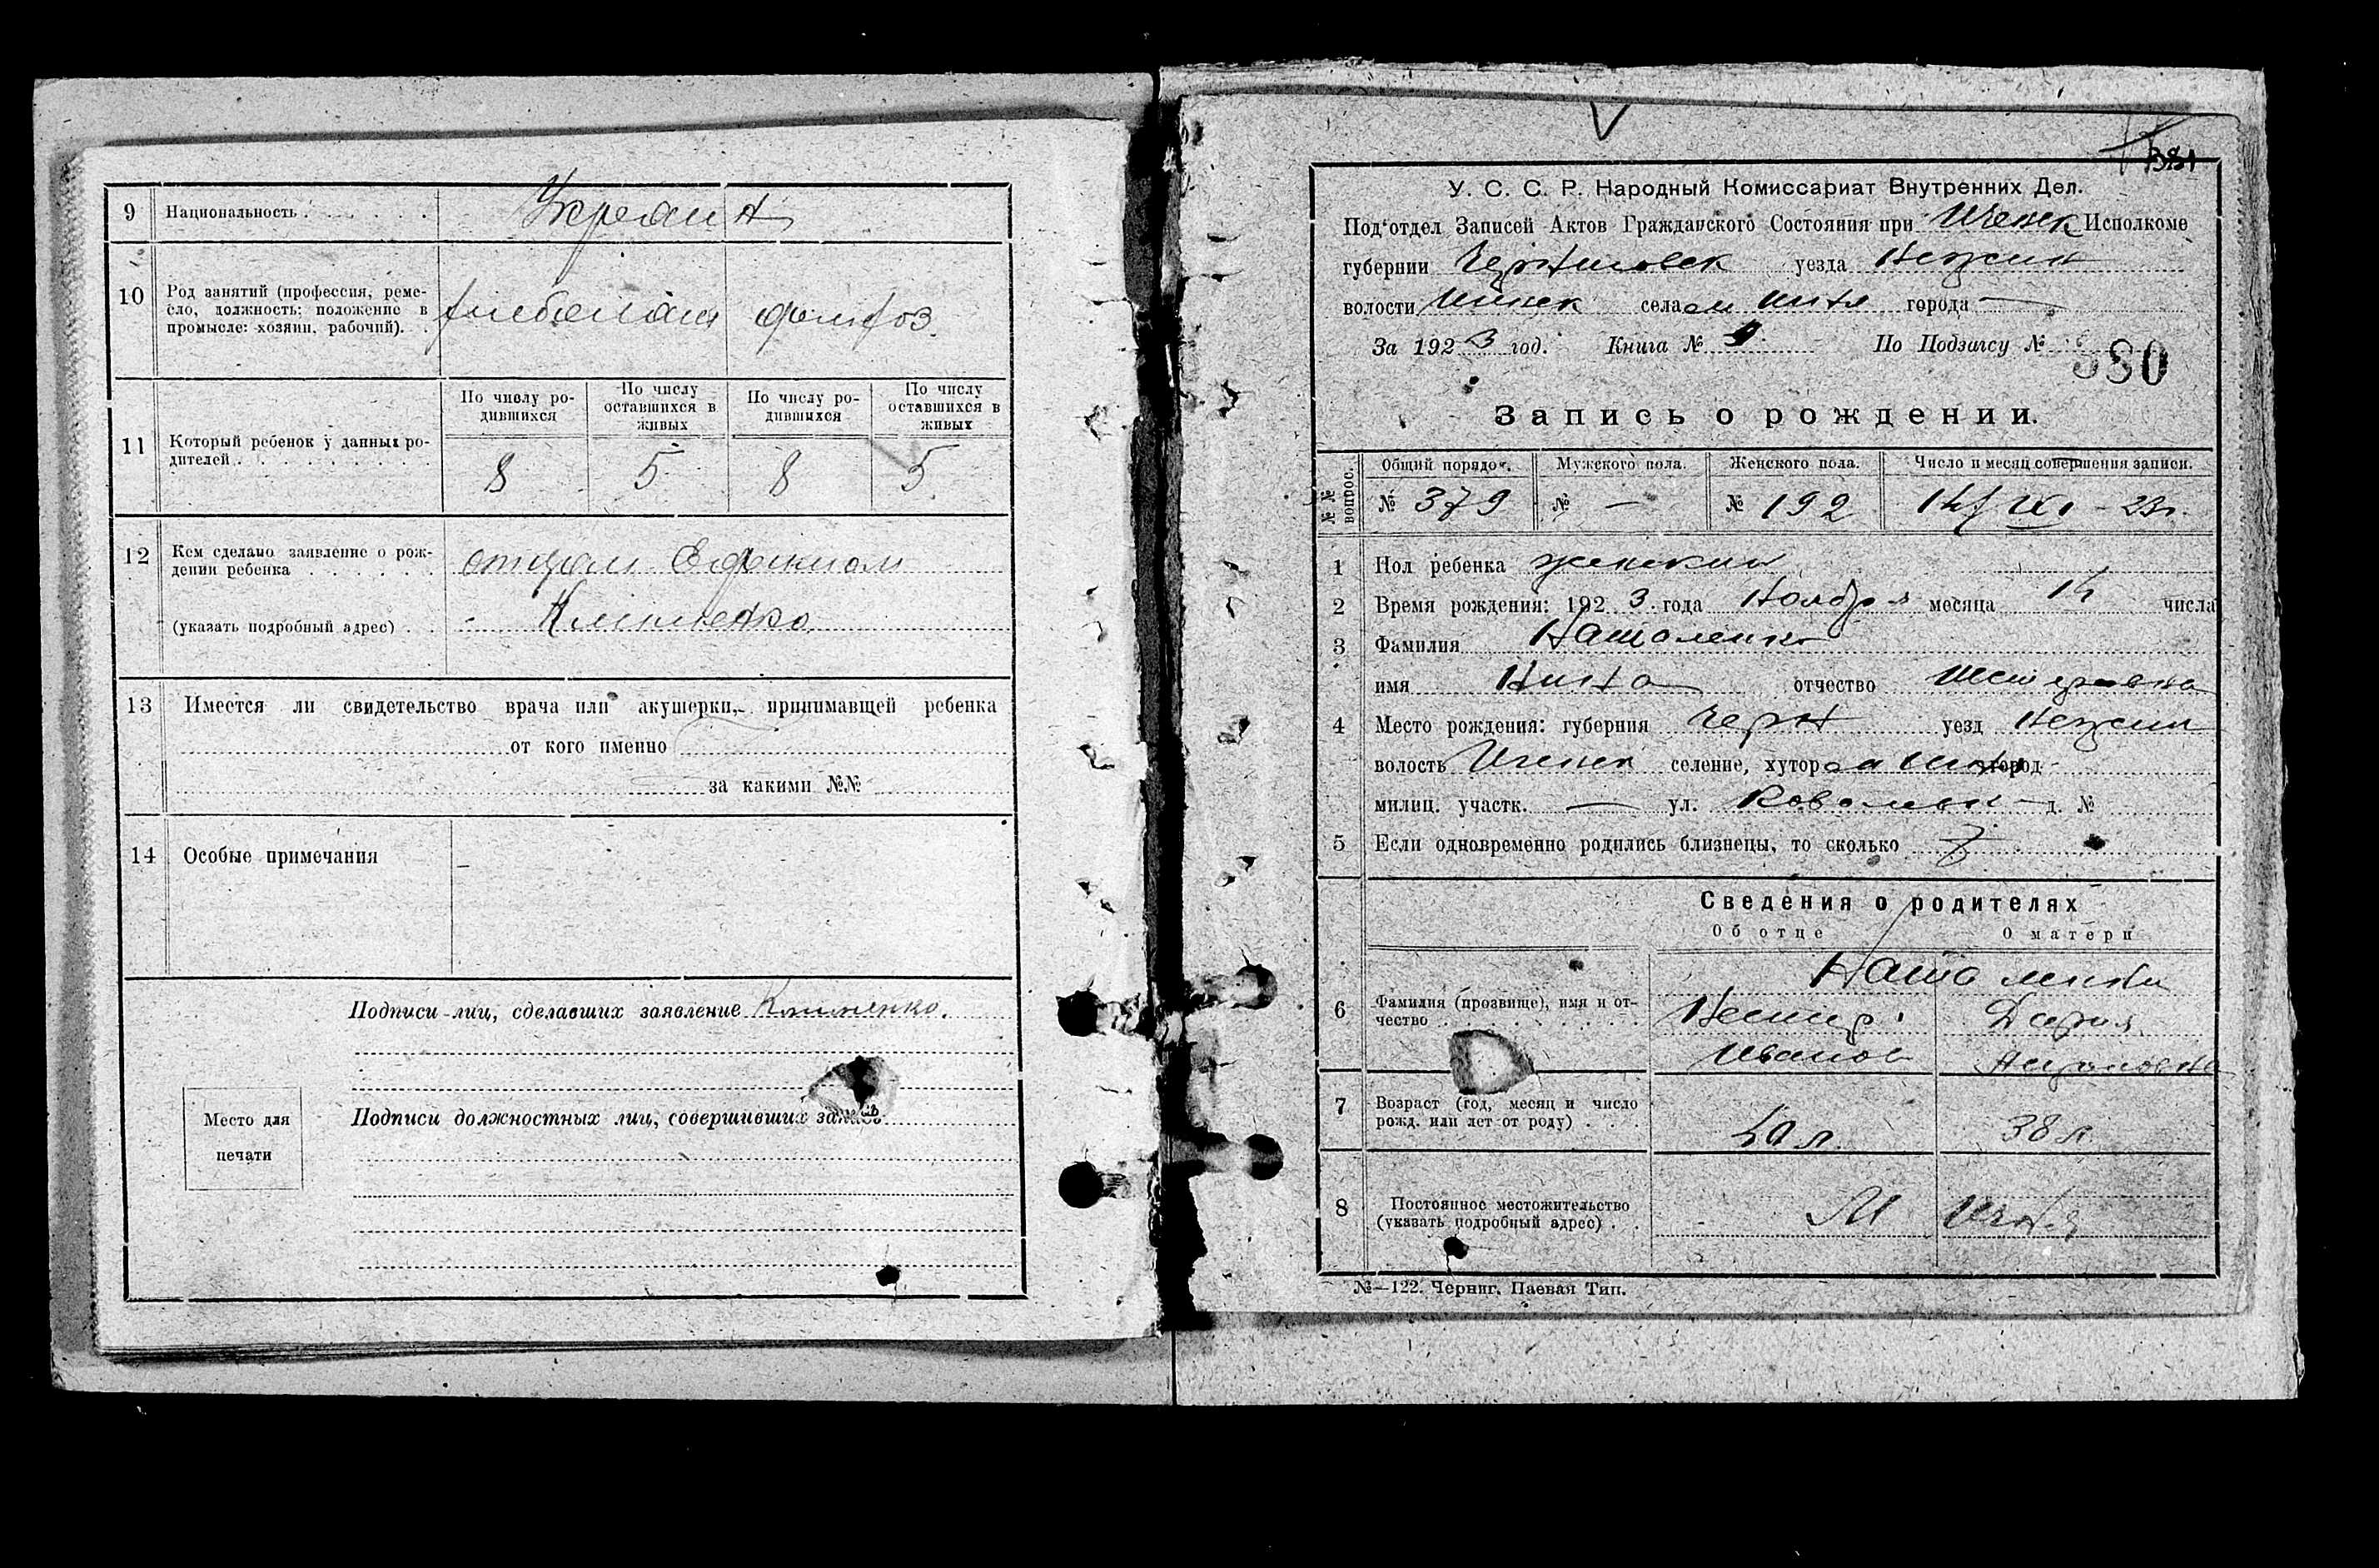 9 Национальность . . . . . . Украин
10 Род занятий (профессия, реме-
сло, должность: положение в
промысле: хозяин, рабочий). . хлебопаш домхоз
11 Который ребенок у данных ро-
дителей . . . . . . . . . .
По числу ро-
дившихся
По числу
оставшихся в
живых
По числу ро-
дившихся
По числу
оставшихся в
живых
8 5 8 5
12 Кем сделано заявление о рож-
дении ребенка . . . . . . отцом Ефимом
(указать подробный адрес) . . Клименко
13 Имеется ли свидетельство врача или акушерки, принимавщей ребенка
от кого именно
за какими №№
14 Особые примечания —
Подписи лиц, сделавших заявление Клименко.
Место для
печати
Подписи должностных лиц, совершивших запись
381
У. С. С. Р. Народный Комиссариат Внутренних Дел.
Под'отдел Записей Актов Гражданского Состояния при Иченск Исполкоме
губернии Черниговск уезда Нежин
волости Иченск села м Ичня города —
За 1923 год. Книга № По Подзагсу № 380
Запись о рождении.
№№ вопрос.
Общий порядок. Мужского пола. Женского пола. Число и месяц совершения записи.
№ 379 № — № 192 14/XI - 23г.
1 Пол ребенка женский
2 Время рождения: 1923 года Ноября месяца 14 числа
3 Фамилия
имя Нина отчество
4 Место рождения: губерния Черн уезд Нежин
волость Иченск селение, хутор м Ичня город
милиц. участк. — ул. д. №
5 Если одновременно родились близнецы, то сколько
Сведения о родителях
Об отце О матери
6 Фамилия (прозвище), имя и от-
чество . . . . . . . . . .
Нестер Дария
Иванов
7 Возраст (год, месяц и число
рожд. или лет от роду) . . . 40 л. 38 л.
8 Постоянное местожительство
(указать подробный адрес) . . М Ичня
№—122. Черниг. Паевая Тип.